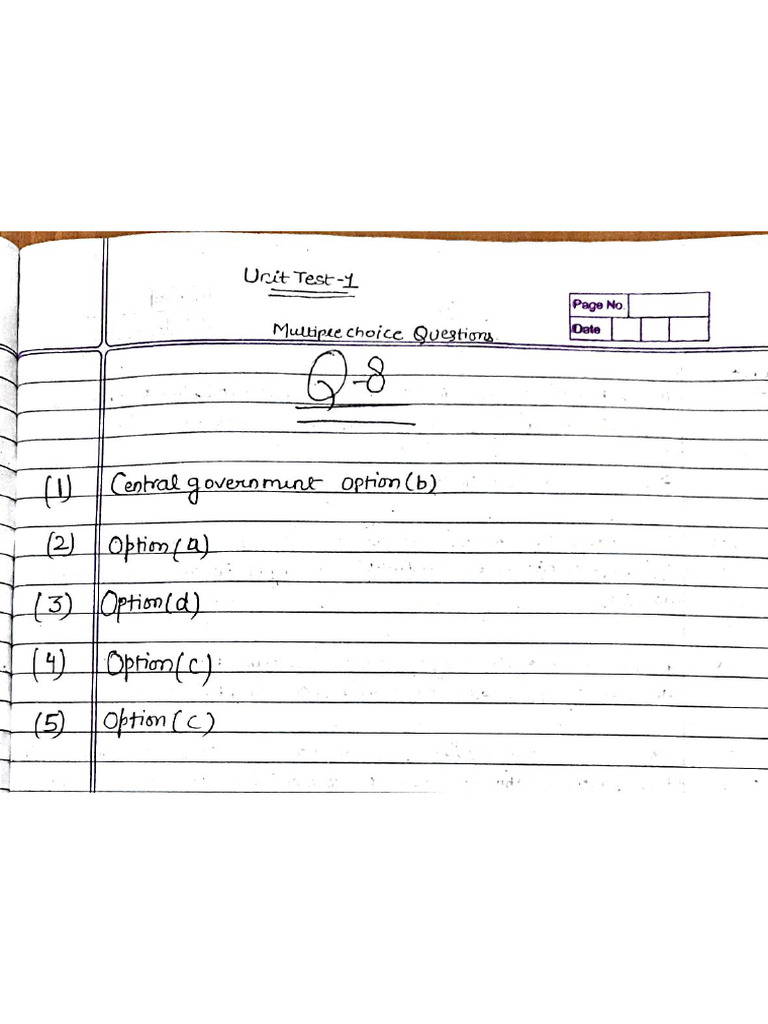 Unit Test-1
Page No.
Date
Multiple choice Questions
Q-8
(1) Central government option(b)
(2) Option(a)
(3) Option(d)
(4) Option(c)
(5) Option(c)